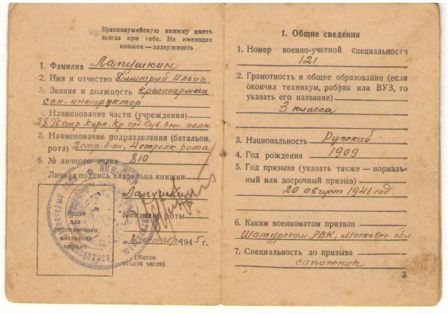 Красноармейскую книжку иметь
всегда при себе. Не имеющих
книжек — задерживать
1. Фамилия Лапушкин
2. Имя и отчество Дмитрий Ильич
3. Звание и должность Красноармеец
сан-инструктор
4. Наименование части (учреждения)
28
5. Наименование подразделения (батальон,
рота) 2 стр. б-он, 4 стрелк. рота
6. № личного знака 810
Личная подпись владельца книжки
Лапушкин
Командир роты
1945 г.
(Место
печати части)
I. Общие сведения
1. Номер военно-учетной специальности
121
2. Грамотность и общее образование (если
окончил техникум, рабфак или ВУЗ, то
указать его название)
3 класса
3. Национальность Русский
4. Год рождения 1909
5. Год призыва (указать также — нормаль-
ный или досрочный призыв)
20 август 1941 год.
6. Каким военкоматом призван
Шатурский РВК, Московск. обл
7. Специальность до призыва
сапожник
3